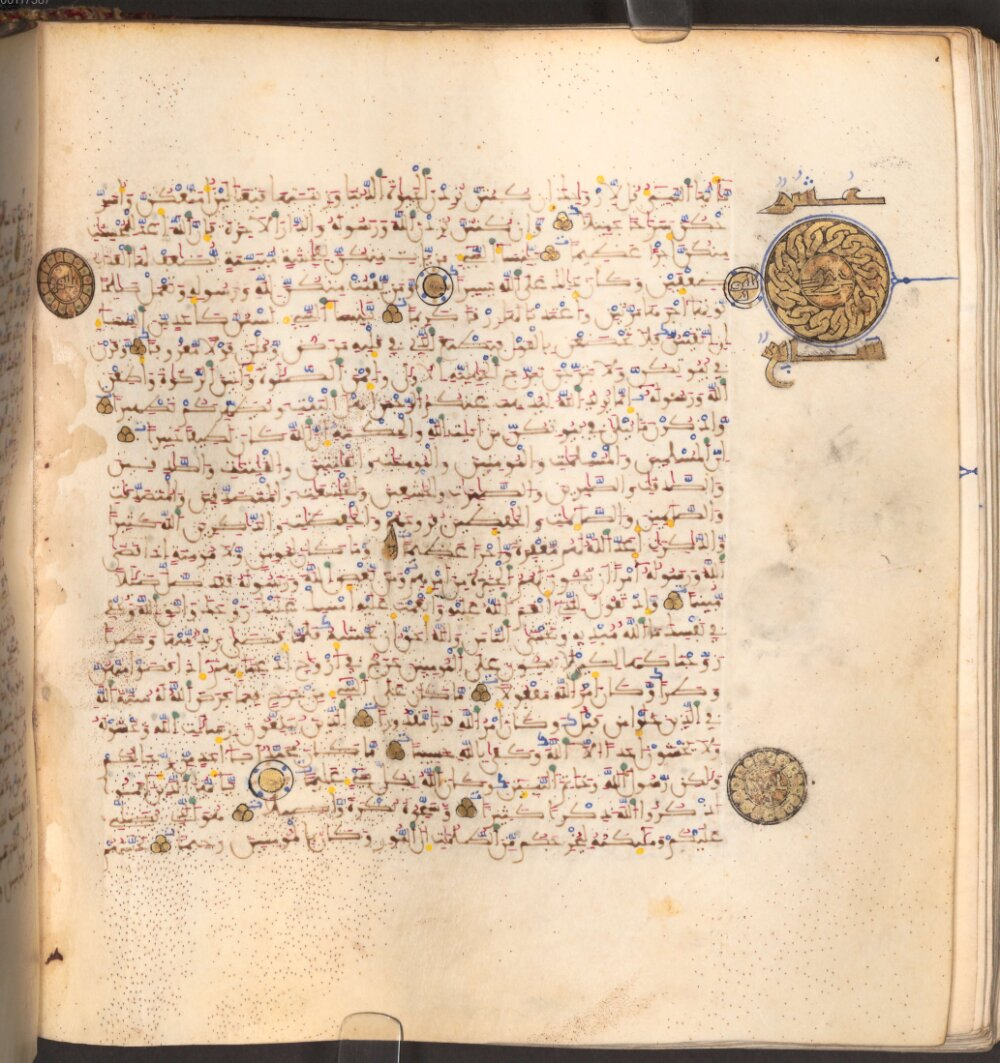 يايها النبي قل لازوجك ان كنتن تردن الحيوة الدنيا وزينتها فتعالين امتعكن واسر
حكن سراحا جميلا وان كنتن تردن الله ورسوله والدار الاخرة فان الله اعد للمحسنت
منكن اجرا عظيما ينسا النبي من يات منكن بفحشة مبينة يضعف لها العذاب
ضعفين وكان ذلك على الله يسيرا ومن يقنت منكن لله ورسوله وتعمل صلحا
نوتها اجرها مرتين واعتدنا لها رزقا كريما ينسا النبي لستن كاحد من النسا
ان اتقيتن فلا تخضعن بالقول فيطمع الذي في قلبه مرض وقلن قولا معروفا وقرن
في بيوتكن ولا تبرجن تبرج الجهلية الاولى واقمن الصلوة واتين الزكوة واطعن
الله ورسوله انما يريد الله ليذهب عنكم الرجس اهل البيت ويطهركم تطهيرا
واذكرن ما يتلى في بيوتكن من ايت الله والحكمة ان الله كان لطيفا خبيرا
ان المسلمين والمسلمت والمومنين والمومنت والقنتين والقنتت والصدقين
والصدقت والصبرين والصبرت والخشعين والخشعت والمتصدقين والمتصدقت
والصيمين والصيمت والحفظين فروجهم والحفظت والذكرين الله كثيرا
والذكرت اعد الله لهم مغفرة واجرا عظيما وما كان لمومن ولا مومنة اذا قضى
الله ورسوله امرا ان تكون لهم الخيرة من امرهم ومن يعص الله ورسوله فقد ضل ضللا
مبينا واذ تقول للذي انعم الله عليه وانعمت عليه امسك عليك زوجك واتق الله وتخفي
في نفسك ما الله مبديه وتخشى الناس والله احق ان تخشيه فلما قضى زيد منها وطرا
زوجنكها لكي لا يكون على المومنين حرج في ازوج ادعيايهم اذا قضوا منهن
وطرا وكان امر الله مفعولا ما كان على النبي من حرج فيما فرض الله له سنة الله
في الذين خلوا من قبل وكان امر الله قدرا مقدورا الذين يبلغون رسلت الله ويخشونه
ولا يخشون احدا الا الله وكفى بالله حسيبا ما كان محمد ابا احد من رجالكم
ولكن رسول الله وخاتم النبيين وكان الله بكل شي عليما يايها الذين امنوا
اذكروا الله ذكرا كثيرا وسبحوه بكرة واصيلا هو الذي يصلي
عليكم ومليكته ليخرجكم من الظلمت الى النور وكان بالمومنين رحيما تحيتهم